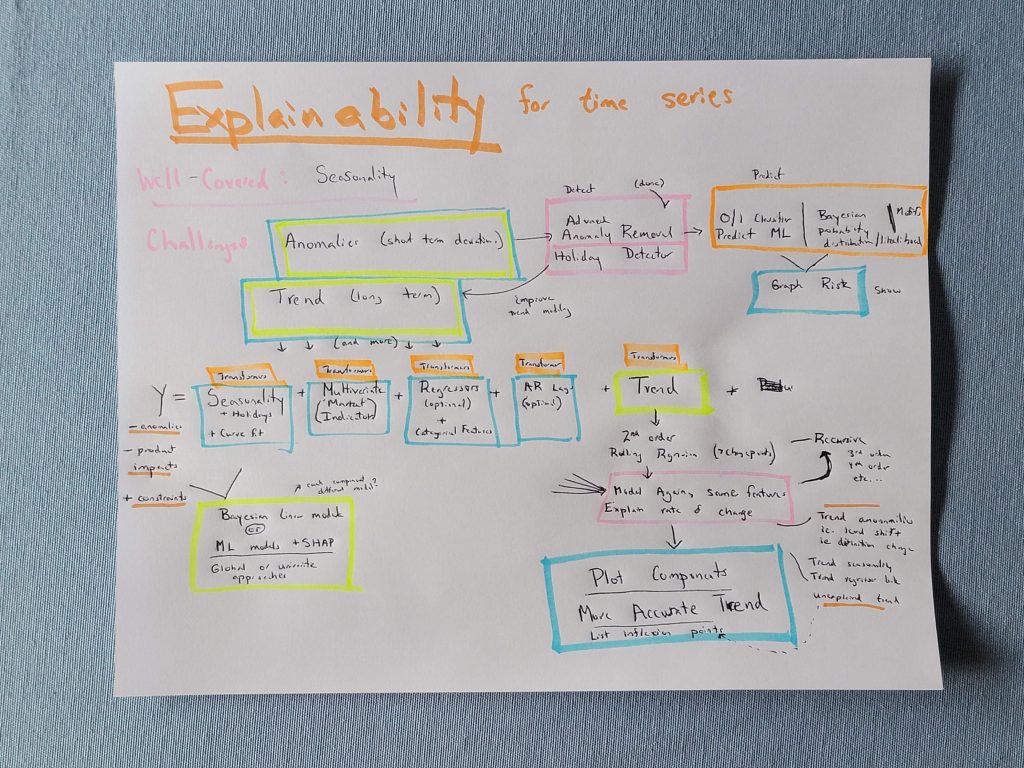 Explainability for time series
Well-Covered: Seasonality
Challenges
Anomalies (short term deviations)
Trend (long term)
(and more)
Detect
(done)
Anomaly Removal
Holiday Detector
improve
trend modeling
Predict
0/1 Classifier
Predict ML
Bayesian
probability
distribution/likelihood
Graph Risk
Show
Y =
- anomalies
- product
impacts
+ constraints
Transformers
Seasonality
+ Holidays
+ Curve fit
+
Transformers
Multivariate
"Market"
(Indicators)
+
Transformers
Regressors
(optional)
+
Categorical Features
+
Transformer
AR Lags
(optional)
+
Transformers
Trend
+
each component
different model?
Bayesian linear models
or
ML models + SHAP
Global or univariate
approaches
2nd order
Rolling Regression (>changepoints)
Model Again, same features
Explain rate of change
- Recursive
3rd order
4th order
etc...
Trend anomalies
ie. level shift
ie definition change
Trend seasonality
Trend regressor
unexplained trend
Plot Components
More Accurate Trend
List inflexion points